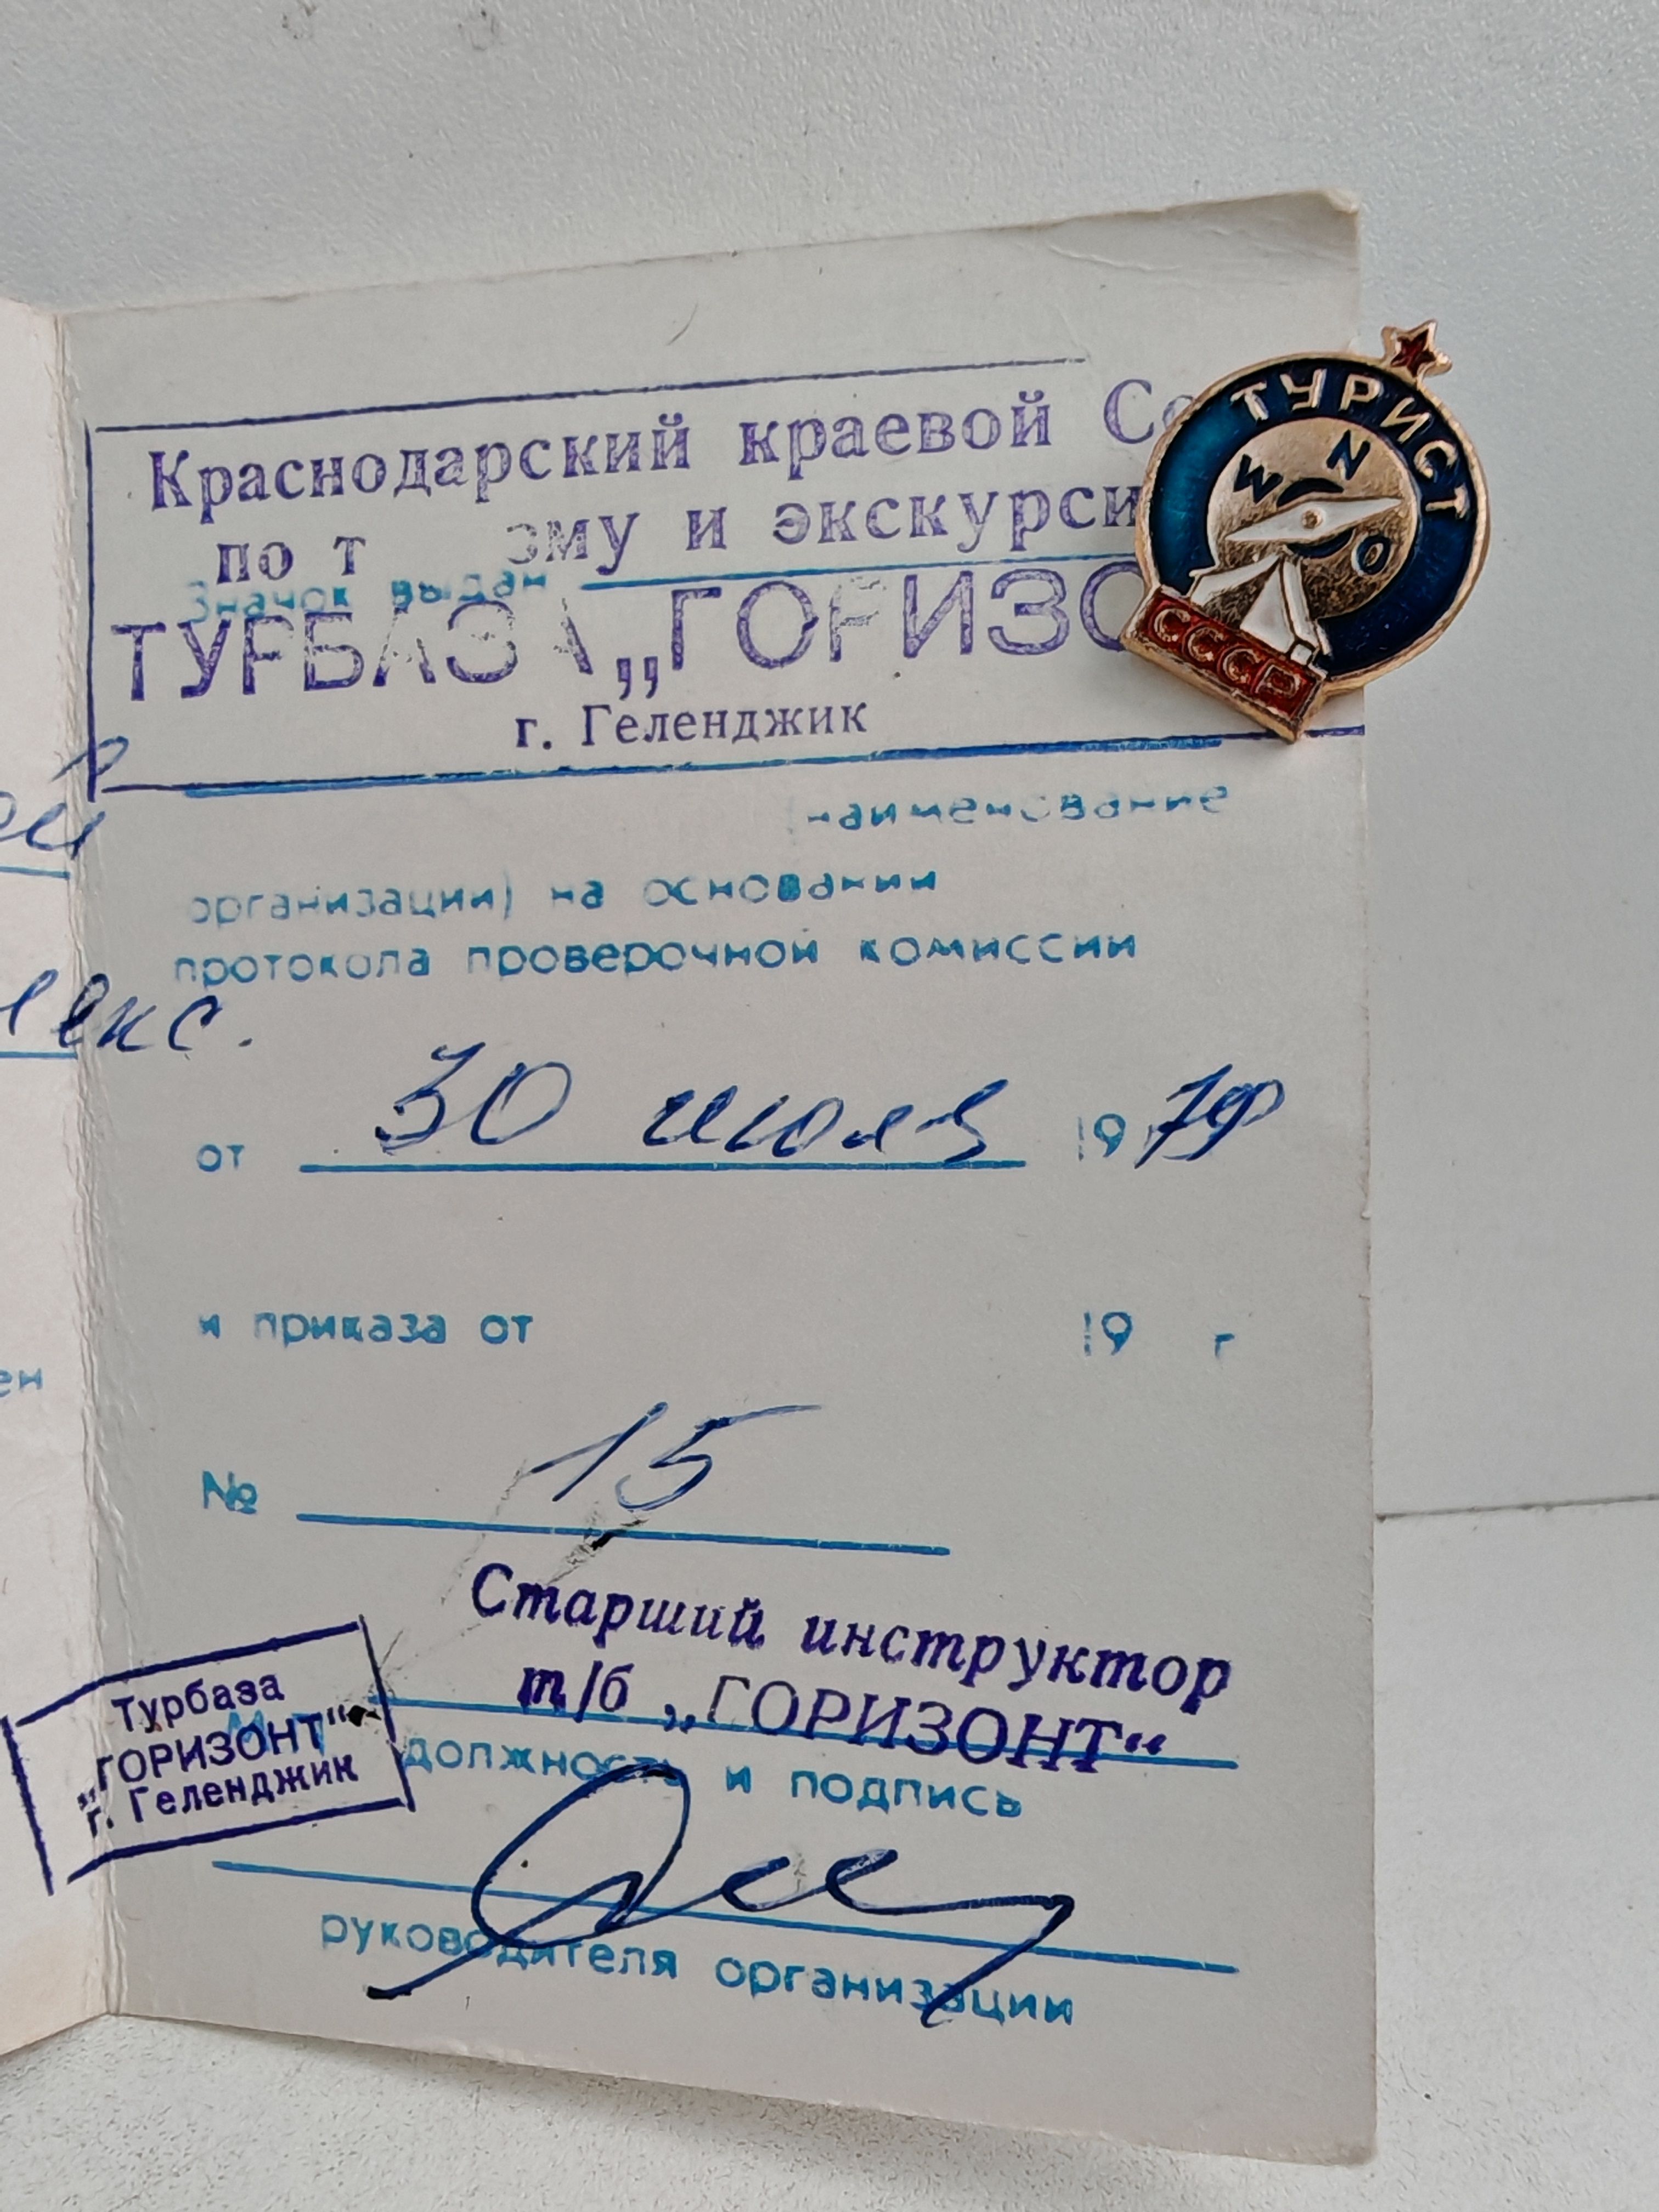 Краснодарский краевой Со
по т эму и экскурси
Значок выдан
ТУРБАЗА „ГОРИЗО
г. Геленджик
(наименование
организации) на основании
протокола проверочной комиссии
лекс.
от 30 июля 1979
и приказа от 19 г
№ 15
Старший инструктор
т/б „ГОРИЗОНТ“
должность и подпись
руководителя организации
Турбаза
„ГОРИЗОНТ“
г. Геленджик
ен
ТУРИСТ
N
W
O
СССР